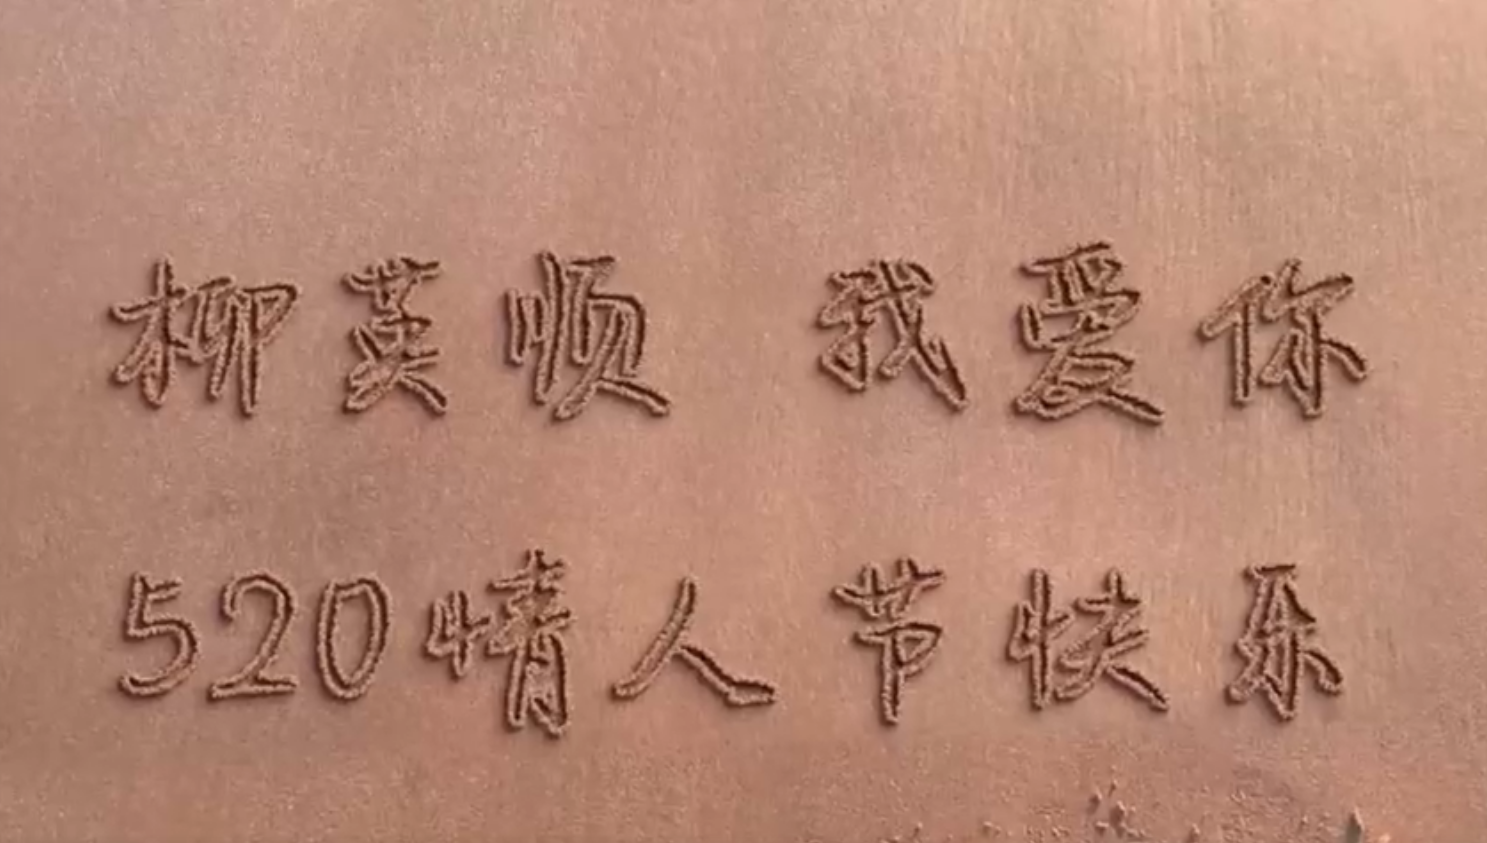 柳英顺 我爱你
520情人节快乐